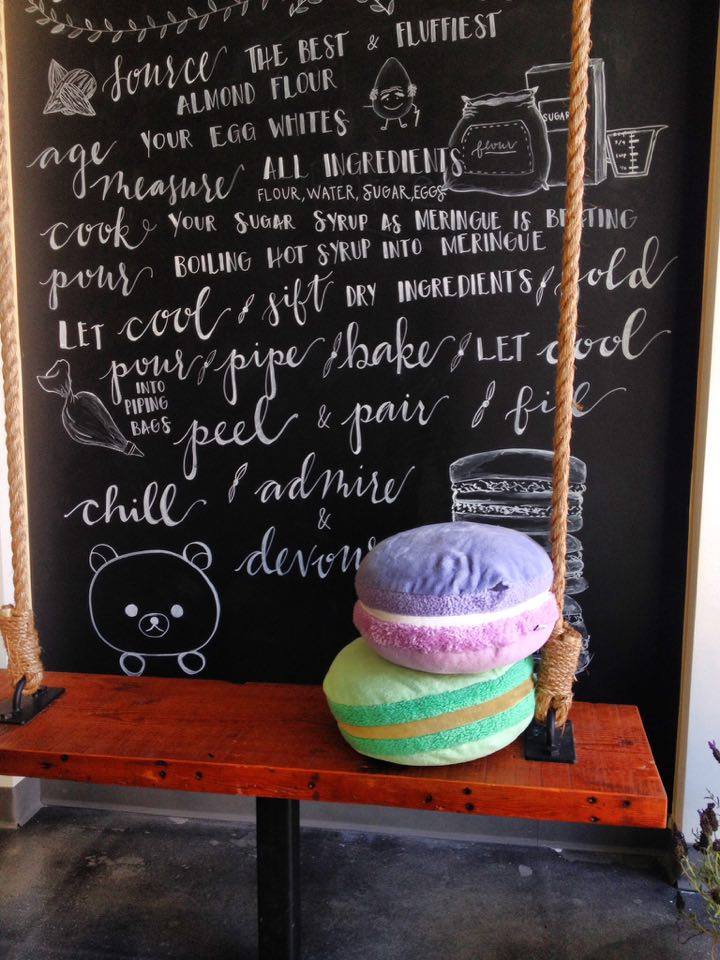 source THE BEST & FLUFFIEST
ALMOND FLOUR
age YOUR EGG WHITES
measure ALL INGREDIENTS
FLOUR, WATER, SUGAR, EGGS
flour
SUGAR
cook YOUR SUGAR SYRUP AS MERINGUE IS BEATING
pour BOILING HOT SYRUP INTO MERINGUE
LET cool & sift DRY INGREDIENTS & fold
pour & pipe & bake & LET cool
INTO
PIPING
BAGS
peel & pair & fill
chill & admire
&
devour